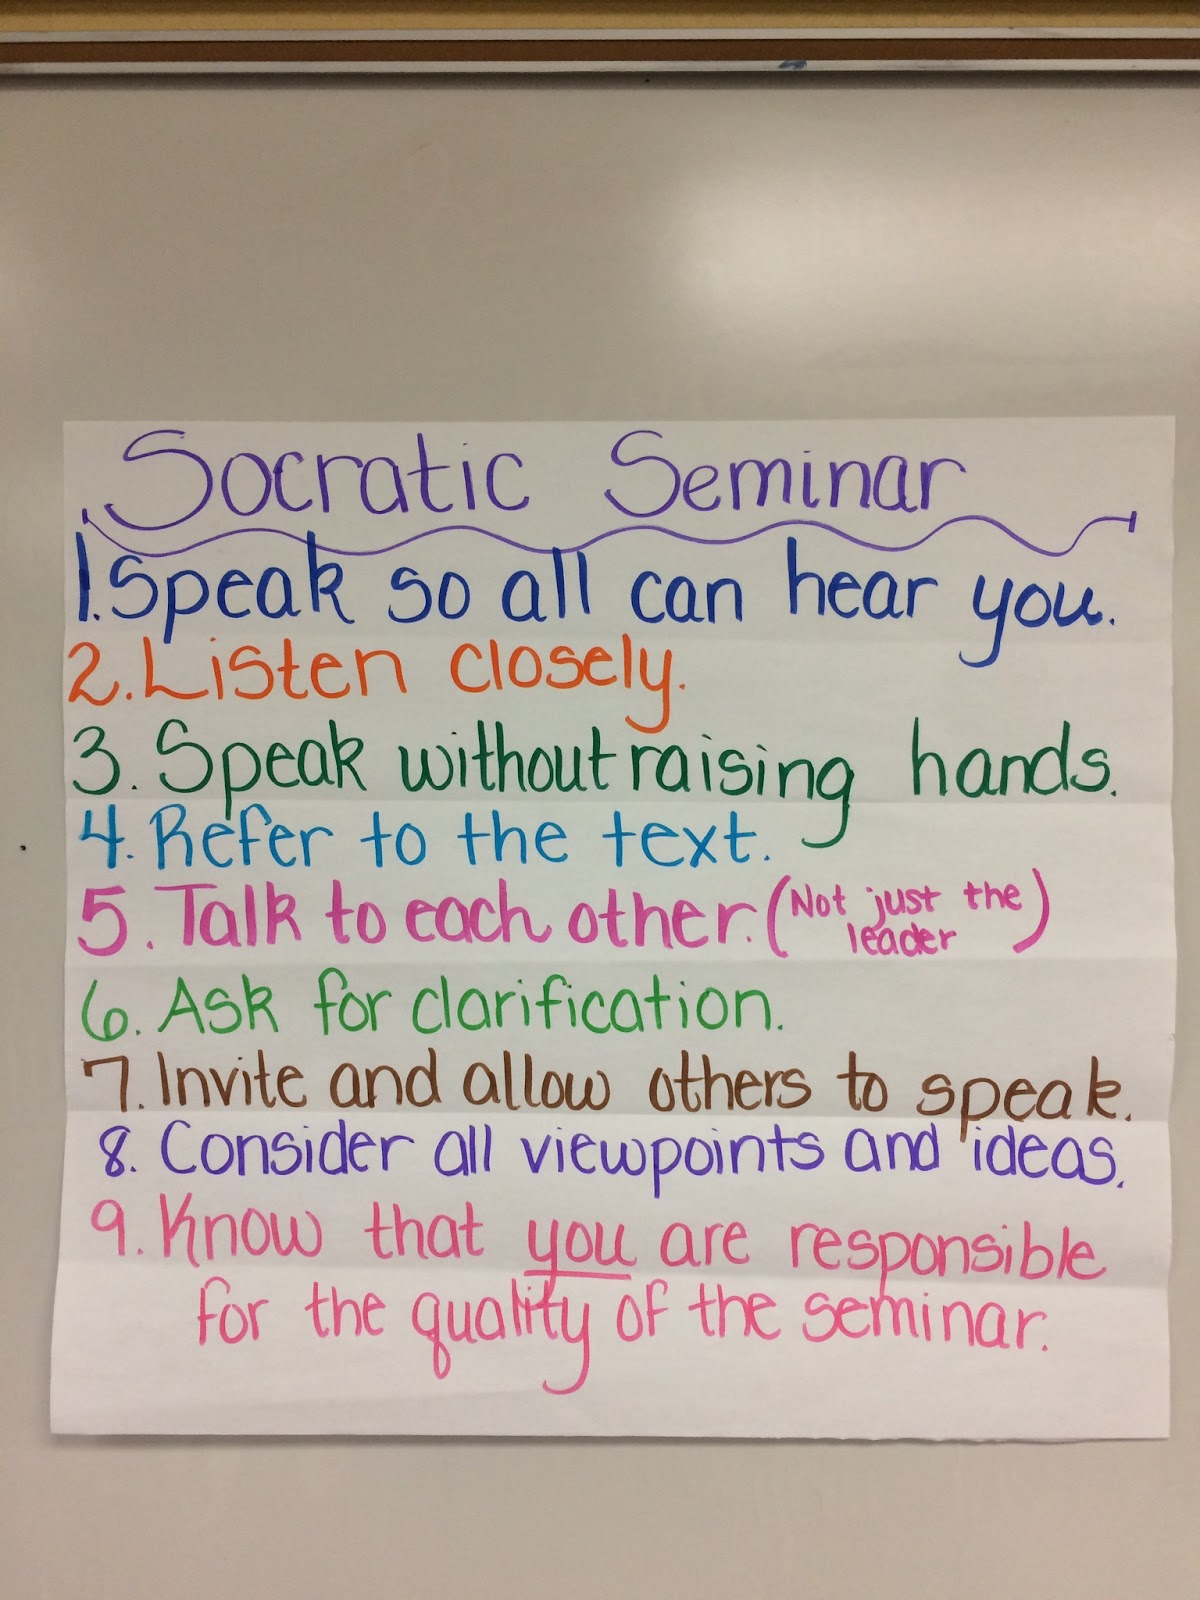 Socratic Seminar
1. Speak so all can hear you.
2. Listen closely.
3. Speak without raising hands.
4. Refer to the text.
5. Talk to each other. (Not just the
leader)
6. Ask for clarification.
7. Invite and allow others to speak.
8. Consider all viewpoints and ideas.
9. Know that you are responsible
for the quality of the seminar.